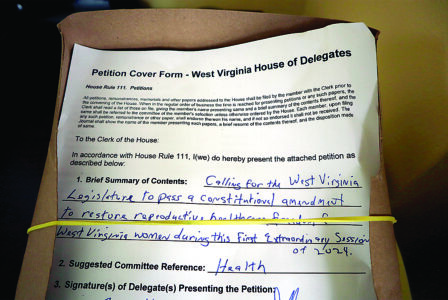 Petition Cover Form - West Virginia House of Delegates
House Rule 111. Petitions
All petitions, remonstrances, memorials and other papers addressed to the House shall be filed by the member with the Clerk prior to
the convening of the House. When in the regular order of business the time is reached for presenting petitions or any such papers, the
Clerk shall read a list of those on file, giving the member's name presenting same and a brief summary of the contents thereof, and the
same shall be referred to the committee of the member's selection unless otherwise ordered by the House. Each member, upon filing
any such petition, remonstrance or other paper, shall endorse thereon his name, and if not so endorsed it shall not be received. The
Journal shall show the name of the member presenting such papers, a brief resume of the contents thereof, and the disposition made
of same.
To the Clerk of the House:
In accordance with House Rule 111, I(we) do hereby present the attached petition as
described below.
1. Brief Summary of Contents: Calling for the West Virginia
Legislature to pass a constitutional amendment
to restore reproductive healthcare
West Virginia women during this First Extraordinary Session
of 2024.
2. Suggested Committee Reference: Health
3. Signature(s) of Delegate(s) Presenting the Petition: